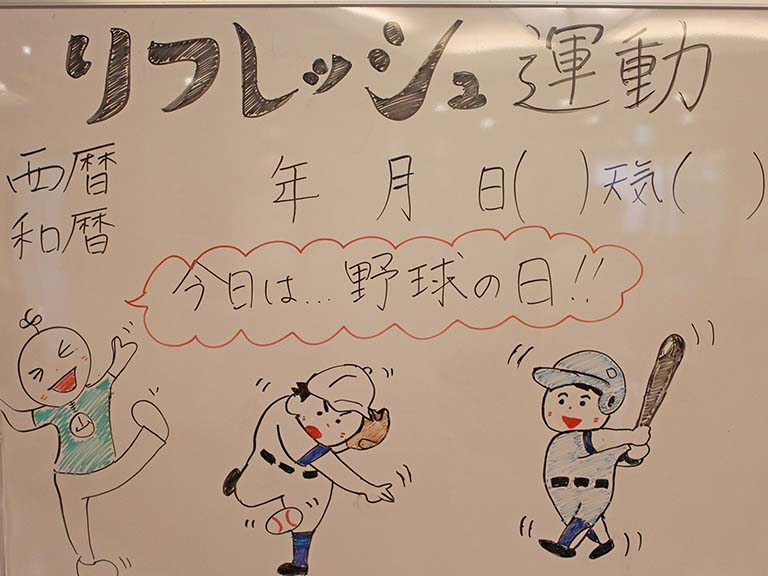 リフレッシュ運動
西暦 年 月 日( )天気( )
和暦
今日は…野球の日!!